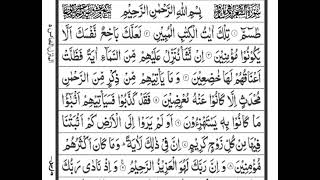 بِسْمِ اللّٰهِ الرَّحْمٰنِ الرَّحِيْمِ
طٰسٓمّٓ ۝ تِلْكَ اٰيٰتُ الْكِتٰبِ الْمُبِيْنِ ۝ لَعَلَّكَ بَاخِعٌ نَّفْسَكَ اَلَّا
يَكُوْنُوْا مُؤْمِنِيْنَ ۝ اِنْ نَّشَاْ نُنَزِّلْ عَلَيْهِمْ مِّنَ السَّمَآءِ اٰيَةً فَظَلَّتْ
اَعْنَاقُهُمْ لَهَا خٰضِعِيْنَ ۝ وَمَا يَاْتِيْهِمْ مِّنْ ذِكْرٍ مِّنَ الرَّحْمٰنِ
مُحْدَثٍ اِلَّا كَانُوْا عَنْهُ مُعْرِضِيْنَ ۝ فَقَدْ كَذَّبُوْا فَسَيَاْتِيْهِمْ اَنْۢبٰٓؤُا
مَا كَانُوْا بِهٖ يَسْتَهْزِءُوْنَ ۝ اَوَلَمْ يَرَوْا اِلَى الْاَرْضِ كَمْ اَنْۢبَتْنَا
فِيْهَا مِنْ كُلِّ زَوْجٍ كَرِيْمٍ ۝ اِنَّ فِيْ ذٰلِكَ لَاٰيَةً ؕ وَمَا كَانَ اَكْثَرُهُمْ
مُّؤْمِنِيْنَ ۝ وَاِنَّ رَبَّكَ لَهُوَ الْعَزِيْزُ الرَّحِيْمُ ۝ وَاِذْ نَادٰى رَبُّكَ